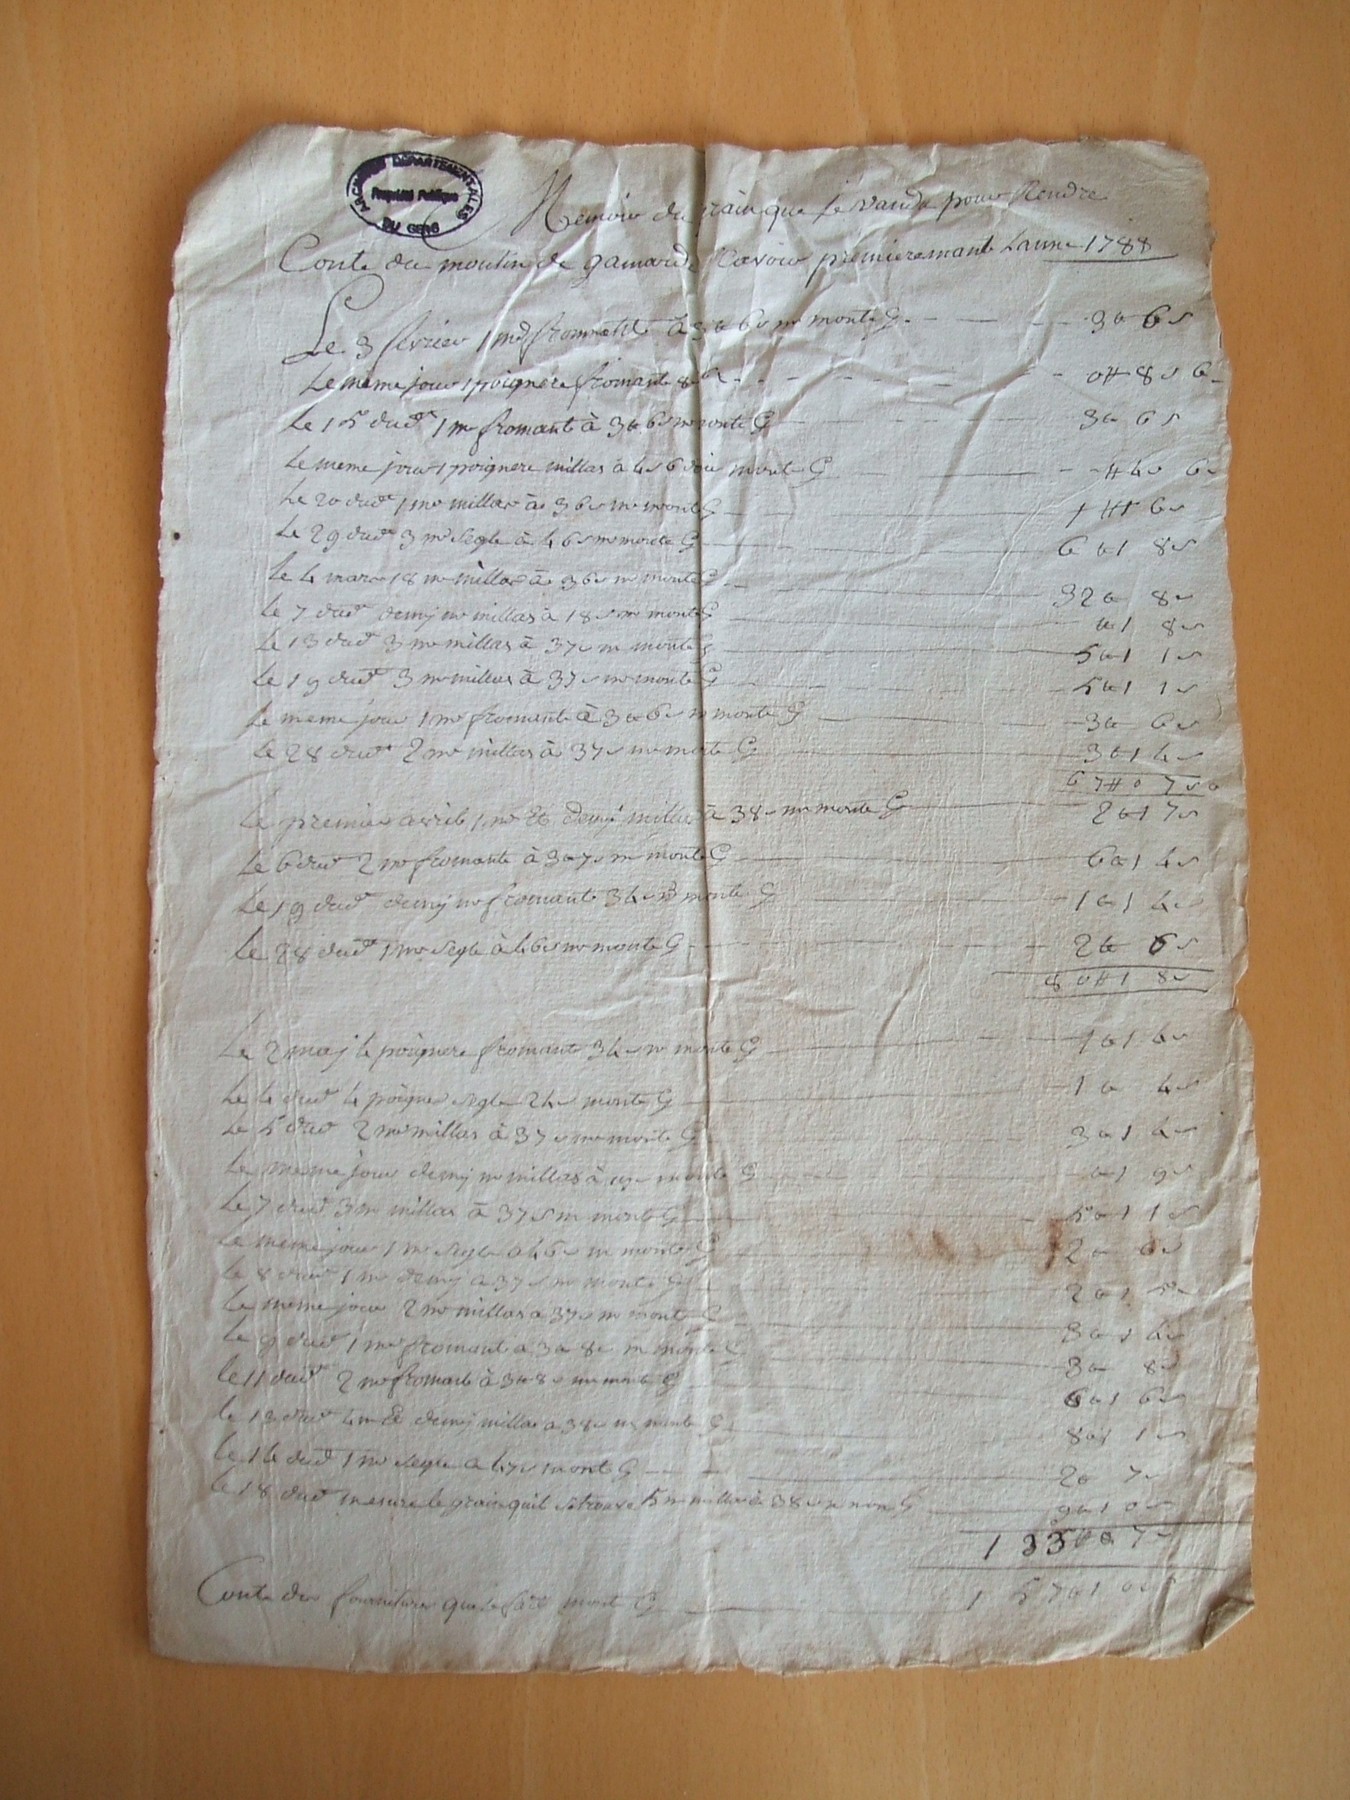 ARCHIVES DEPARTEMENTALES
Propriété Publique
DU GERS
Memoire du grain que Je vandu pour Rendre
Conte du moulin de gamarde Savoir premieremant Lanne 1788
Le 3 fevrier 1 me fromant à 3# 6s me monte 3# 6s
Le meme jour 1 poignere fromante 8s 6 0# 8s 6
Le 15 dud 1 me fromante à 3# 6s me monte 3# 6s
Le meme jour 1 poignere millas à 4s 6 monte # 4s 6
Le 20 dud 1 me millas à 36s me monte 1# 16s
Le 29 dud 3 me segle à 46s me monte 6#18s
Le 4 mars 18 me millas à 36s me monte 32# 8s
Le 7 dud demy me millas à 18s me monte #18s
Le 13 dud 3 me millas à 37s me monte 5#11s
Le 19 dud 3 me millas à 37s me monte 5#11s
Le meme jour 1 me fromante à 3# 6s me monte 3# 6s
Le 28 dud 2 me millas à 37s me monte 3#14s
67# 7s
Le premier avril 1 me Et demy millas à 38s me monte 2#17s
Le 6 dud 2 me fromante à 3# 7s me monte 6#14s
Le 19 dud demy me fromante 34s monte 1#14s
Le 28 dud 1 me segle à 46s me monte 2# 6s
80#18s
Le 2 may 4 poignere fromante 34s me monte 1#14s
Le 4 dud 4 poigne segle 24s monte 1# 4s
Le 5 dud 2 me millas à 37s me monte 3#14s
Le meme jour demy me millas à 19s monte #19s
Le 7 dud 3 me millas à 37s me monte 5#11s
Le meme jour 1 me segle à 46s me monte 2# 6s
Le 8 dud 1 me demy à 37s me monte 2#15s
Le meme jour 2 me millas à 37s me monte 3#14s
Le 9 dud 1 me fromant à 3# 8s me monte 3# 8s
Le 11 dud 2 me fromante à 3# 8s me monte 6#16s
Le 13 dud 4 me Et demy millas à 38s me monte 8#11s
Le 14 dud 1 me segle à 47s monte 2# 7s
Le 18 dud mesure le grain quil se trouve 5 me millas à 38s me mon 9#10s
133# 7s
Conte des fourniture que Je fait monte 1 57#10s